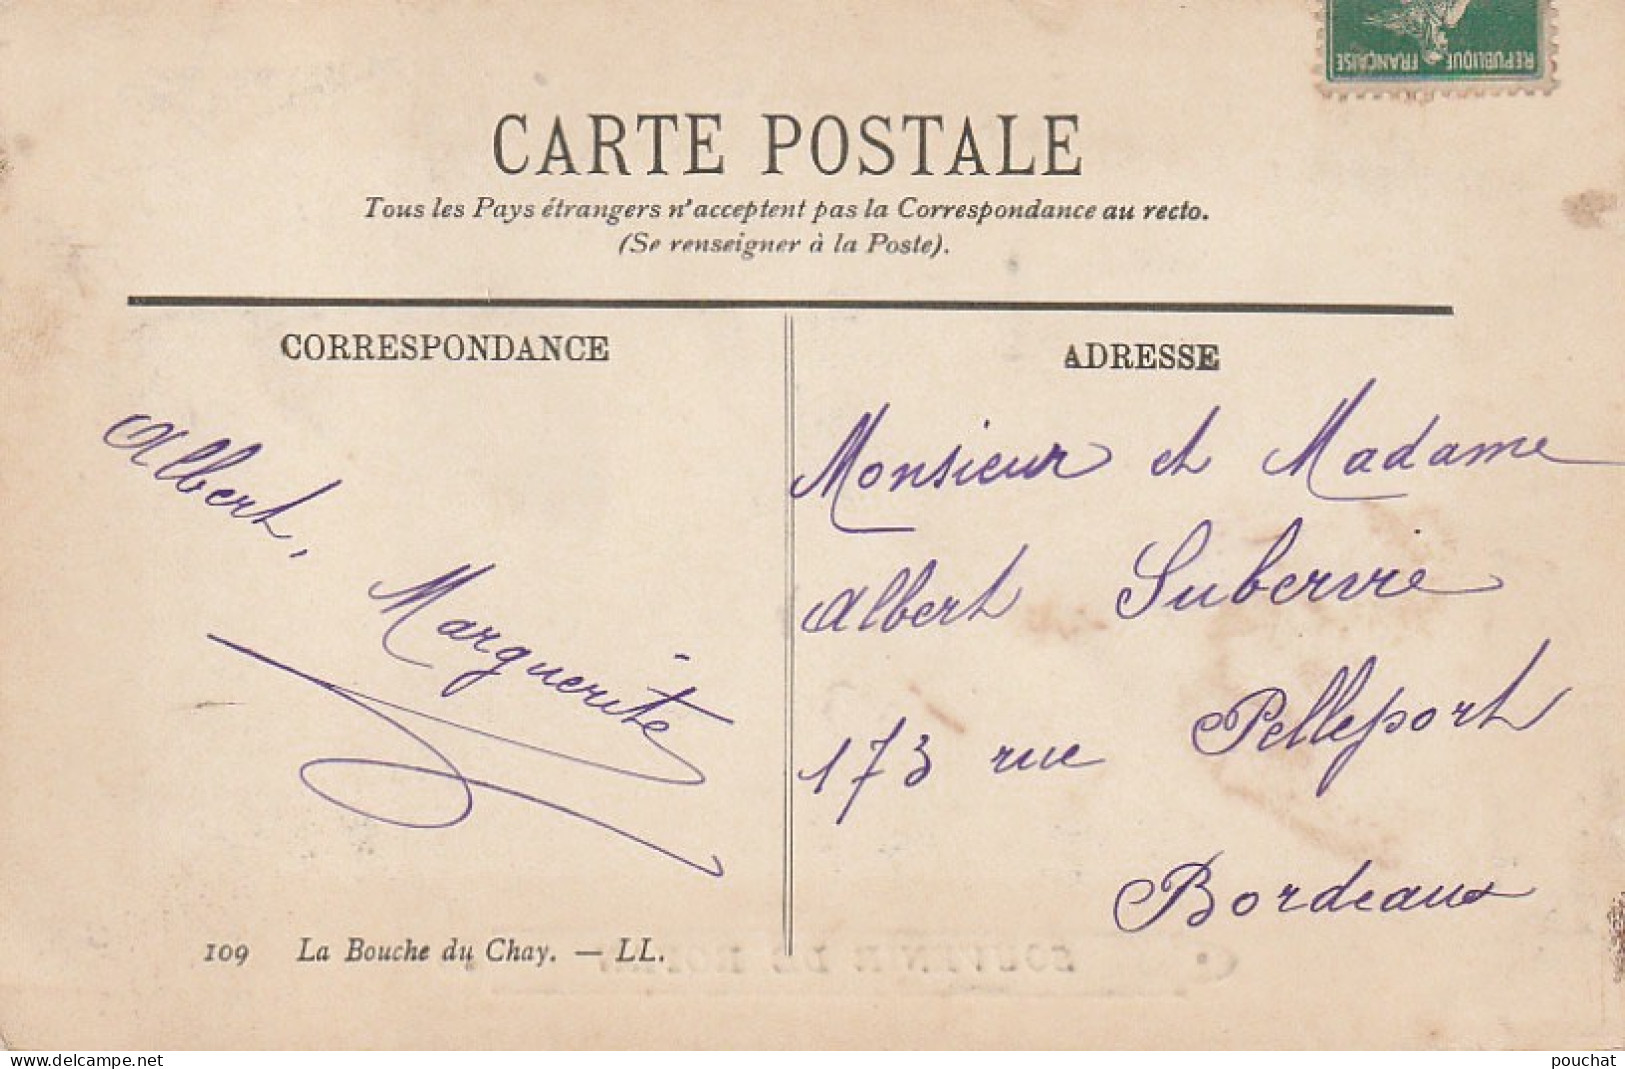 REPUBLIQUE FRANÇAISE
CARTE POSTALE
Tous les Pays étrangers n'acceptent pas la Correspondance au recto.
(Se renseigner à la Poste).
CORRESPONDANCE
Albert,
Marguerite
109 La Bouche du Chay. — LL.
ADRESSE
Monsieur et Madame
Albert Subervie
173 rue Pelleport
Bordeaux
SOUVENIR DE ROYAN
www.delcampe.net
pouchat